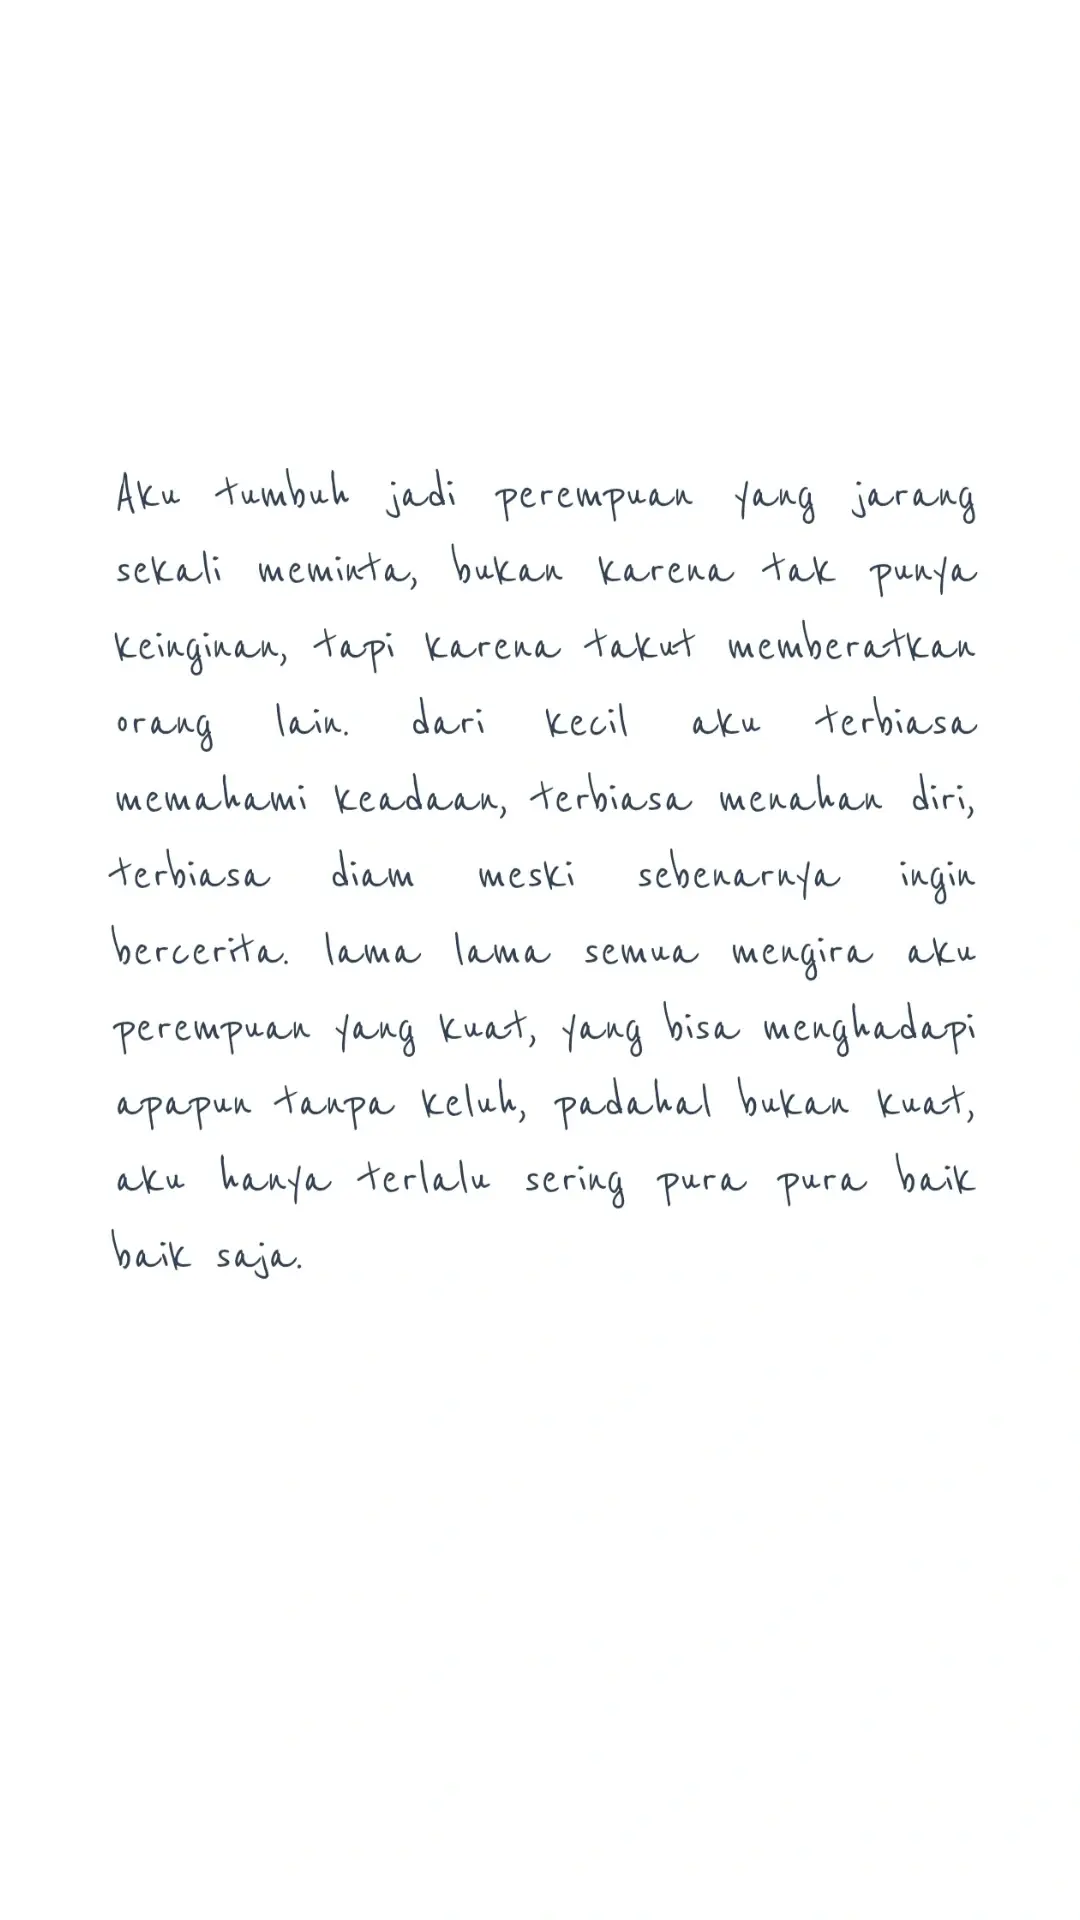 Aku tumbuh jadi perempuan yang jarang
sekali meminta, bukan karena tak punya
keinginan, tapi karena takut memberatkan
orang lain. dari kecil aku terbiasa
memahami keadaan, terbiasa menahan diri,
terbiasa diam meski sebenarnya ingin
bercerita. lama lama semua mengira aku
perempuan yang kuat, yang bisa menghadapi
apapun tanpa keluh, padahal bukan kuat,
aku hanya terlalu sering pura pura baik
baik saja.